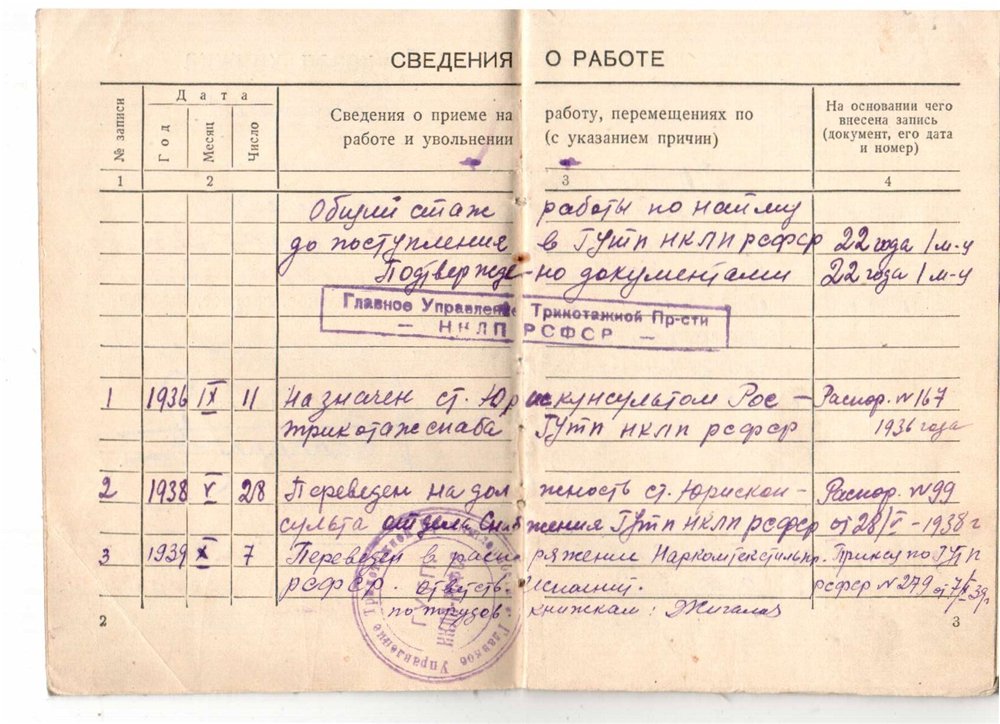 СВЕДЕНИЯ О РАБОТЕ
№ записи
Дата
Год
Месяц
Число
Сведения о приеме на работу, перемещениях по
работе и увольнении (с указанием причин)
На основании чего
внесена запись
(документ, его дата
и номер)
1 2 3 4
Общий стаж работы по найму
до поступления в ГУтп НКЛП РСФСР 22 года 1 м-ц
Подтверждено документами 22 года 1 м-ц
Главное Управление Трикотажной Пр-сти
— НКЛП РСФСР —
1 1936 IX 11 Назначен ст. Юрискунсультом Рос— Распор. № 167
трикотажснаба ГУтп НКЛП РСФСР 1936 года
2 1938 V 28 Переведен на должность ст. Юрискон- Распор. № 99
сульта отдела Снабжения ГУтп НКЛП РСФСР от 28/V-1938 г
3 1939 X 7 Переведен в распоряжение Наркомтекстильпр. Приказ по ГУТП
РСФСР. ответств. исполнит. РСФСР № 279 от 7/X-39г
по трудов. книжкам:
Главное Управление
2 3